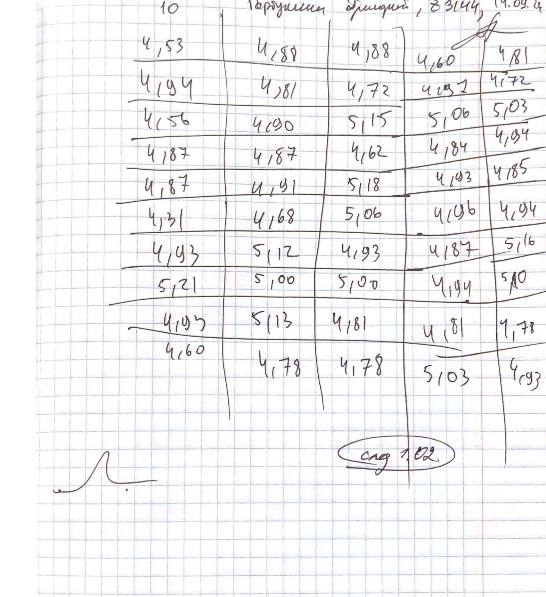 10 , Z3144, 14.09.2
4,53 4,88 4,88 4,60 4,81
4,94 4,81 4,72 4,97 4,72
4,56 4,90 5,15 5,06 5,03
4,87 4,87 4,62 4,84 4,94
4,87 4,91 5,18 4,93 4,85
4,31 4,68 5,06 4,96 4,94
4,93 5,12 4,93 4,87 5,16
5,21 5,00 5,00 4,94 5,10
4,93 5,13 4,81 4,81 4,78
4,60 4,78 4,78 5,03 4,93
след 1.02